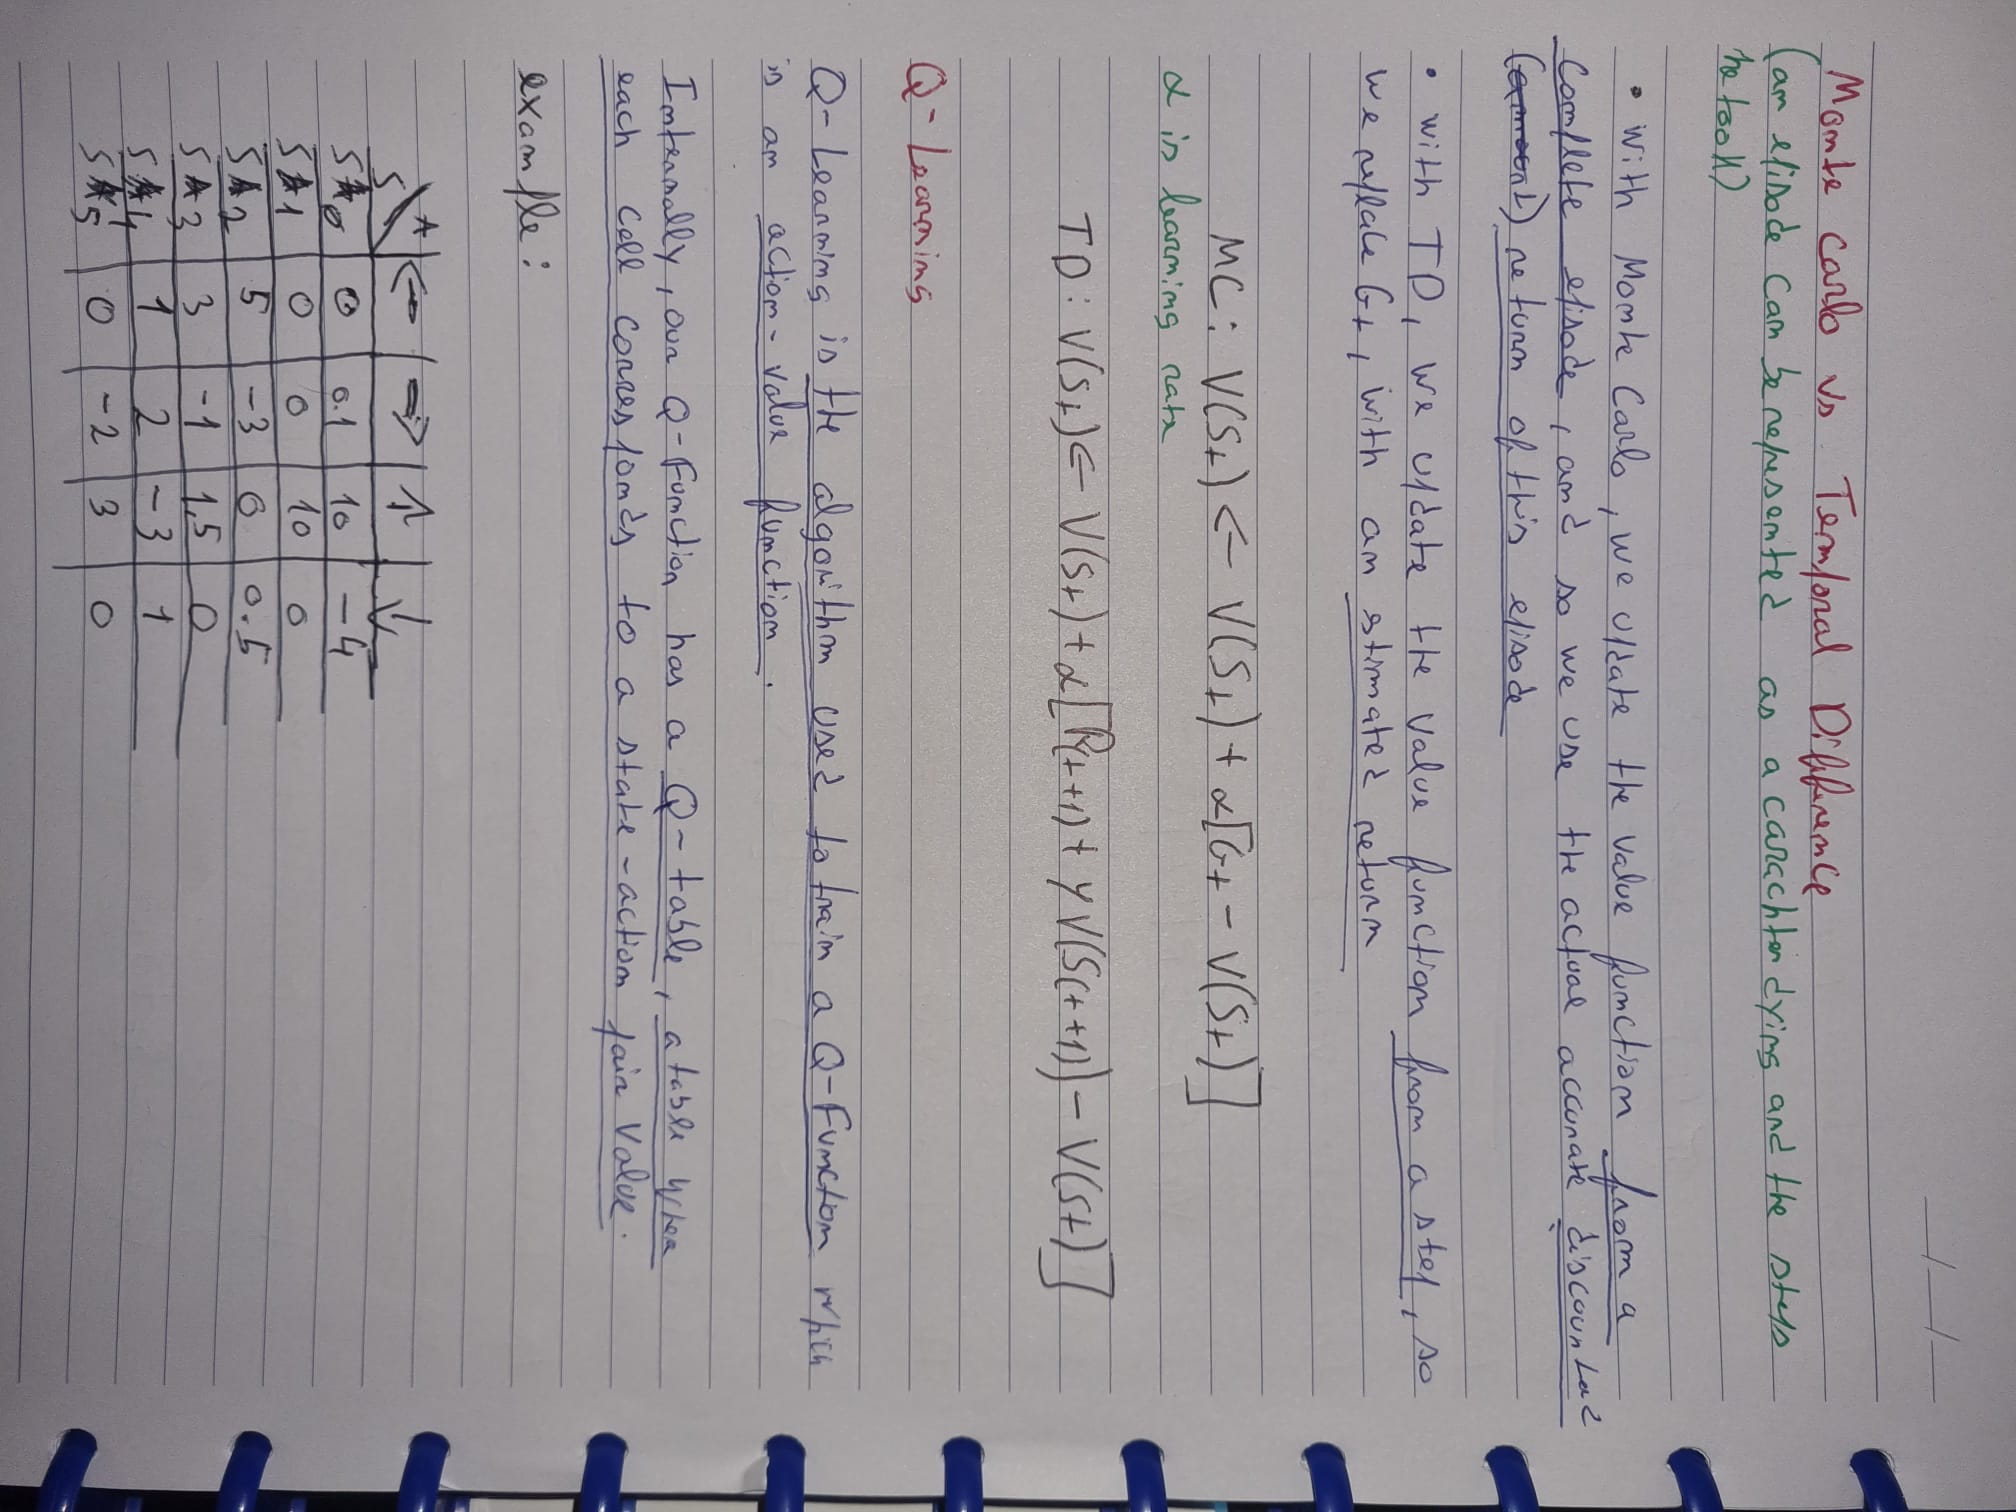 Monte Carlo vs Temporal Difference
(an episode can be represented as a carachter dying and the steps
he took)
• With Monte Carlo, we update the value function from a
complete episode, and so we use the actual accurate discounted
(amount) return of this episode
• with TD, we update the value function from a step, so
we replace Gt, with an estimated return
MC: V(St) ← V(St) + α[Gt - V(St)]
α is learning rate
TD: V(St) ← V(St) + α[R(t+1) + γV(S(t+1)) - V(St)]
Q-Learning
Q-Learning is the algorithm used to train a Q-Function which
is an action-value function.
Internally, our Q-Function has a Q-table, a table when
each cell corresponds to a state-action pair value.
example:
S \ A ← → ↑ ↓
S0 0 0.1 10 -4
S1 0 0 10 0
S2 5 -3 0 0.5
S3 3 -1 1,5 0
S4 1 2 -3 1
S5 0 -2 3 0